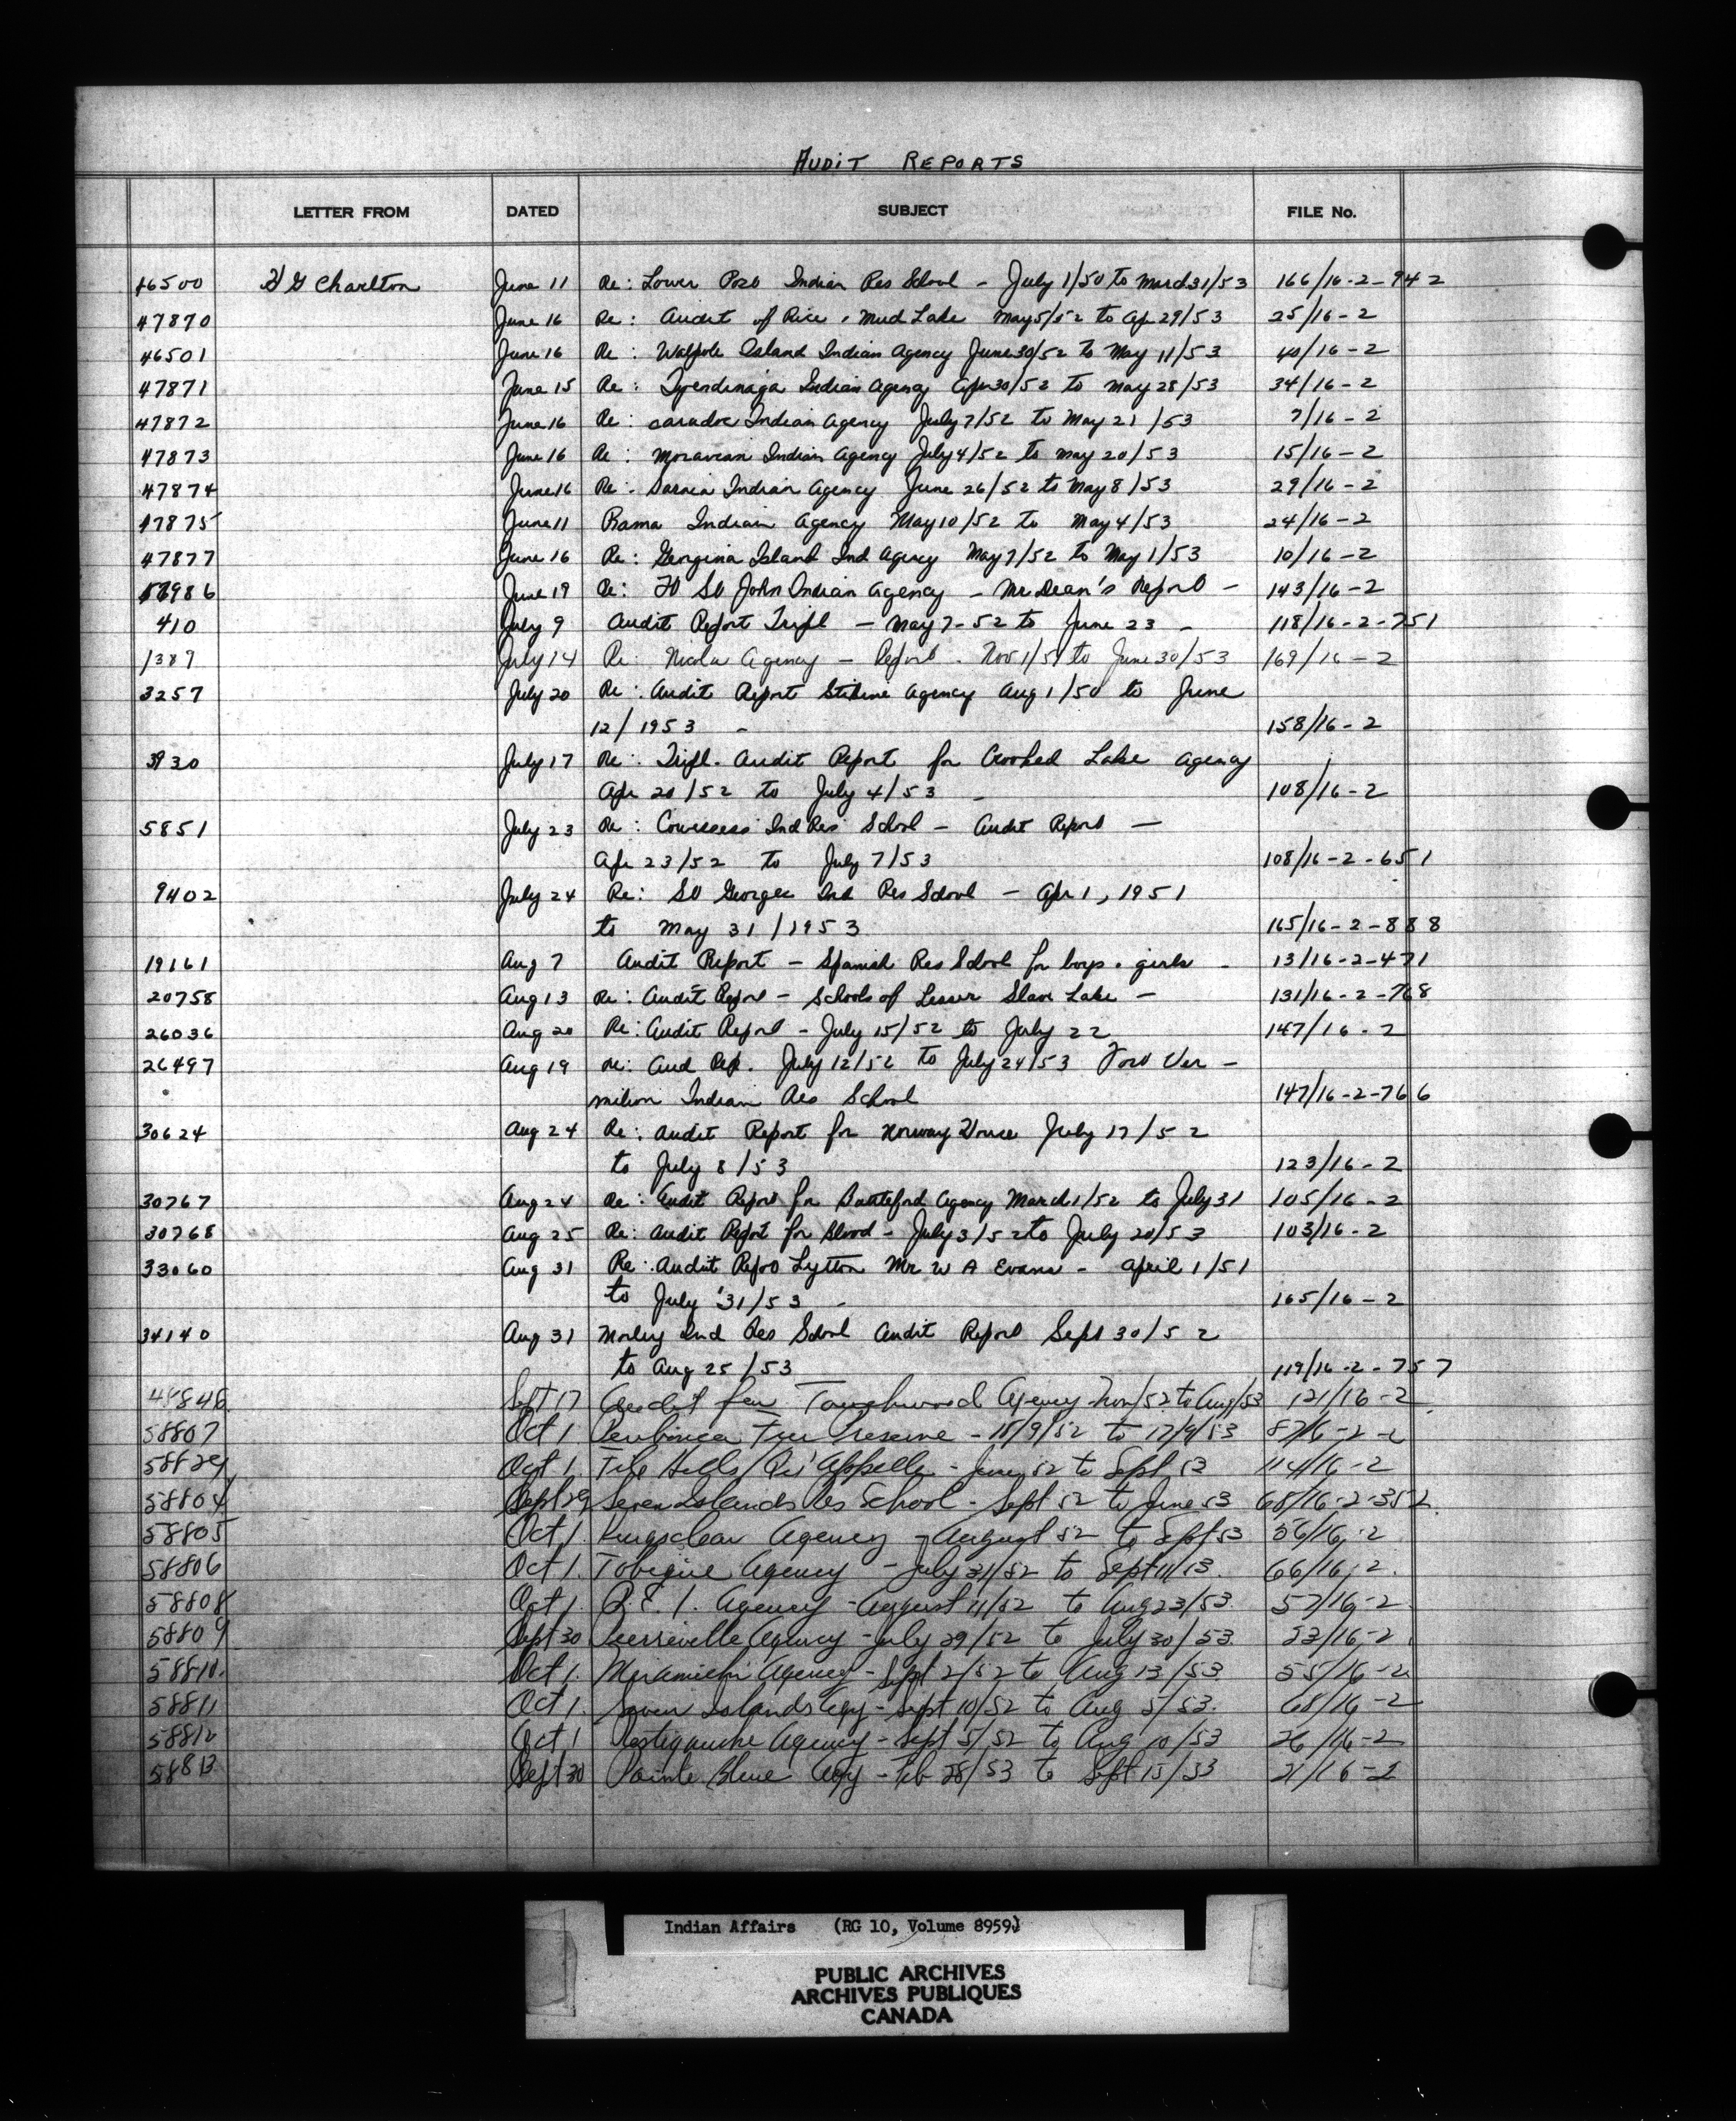 AUDIT REPORTS
LETTER FROM DATED SUBJECT FILE No.
46500 H G Charlton June 11 Re: Lower Post Indian Res School - July 1/50 to March 31/53 166/16-2-942
47870 June 16 Re: Audit of Rice & Mud Lake May 5/52 to Apr 29/53 25/16-2
46501 June 16 Re: Walpole Island Indian Agency June 30/52 to May 11/53 40/16-2
47871 June 15 Re: Tyendinaga Indian Agency Apr 30/52 to May 28/53 34/16-2
47872 June 16 Re: Caradoc Indian Agency July 7/52 to May 21/53 7/16-2
47873 June 16 Re: Moravian Indian Agency July 4/52 to May 20/53 15/16-2
47874 June 16 Re: Sarnia Indian Agency June 26/52 to May 8/53 29/16-2
47875 June 11 Rama Indian Agency May 10/52 to May 4/53 24/16-2
47877 June 16 Re: Georgina Island Ind Agency May 7/52 to May 1/53 10/16-2
986 June 19 Re: Ft St John Indian Agency - Mr Dean's Report - 143/16-2
410 July 9 Audit Report Tripl - May 7-52 to June 23 - 118/16-2-751
1389 July 14 Re: Nicola Agency - Report - Nov 1/51 to June 30/53 169/16-2
3257 July 20 Re: Audit Report Stikine Agency Aug 1/50 to June
12/1953 - 158/16-2
3930 July 17 Re: Tripl. Audit Report for Crooked Lake Agency
Apr 20/52 to July 4/53 - 108/16-2
5851 July 23 Re: Cowessess Ind Res School - Audit Report -
Apr 23/52 to July 7/53 108/16-2-651
9402 July 24 Re: St Georges Ind Res School - Apr 1, 1951
to May 31/1953 165/16-2-888
19161 Aug 7 Audit Report - Spanish Res School for boys & girls - 13/16-2-471
20758 Aug 13 Re: Audit Report - Schools of Lesser Slave Lake - 131/16-2-768
26036 Aug 20 Re: Audit Report - July 15/52 to July 22 147/16-2
26497 Aug 19 Re: Aud Rep. July 12/52 to July 24/53 Fort Ver -
milion Indian Res School 147/16-2-766
30624 Aug 24 Re: Audit Report for Norway House July 17/52
to July 8/53 123/16-2
30767 Aug 24 Re: Audit Report for Battleford Agency March 1/52 to July 31 105/16-2
30768 Aug 25 Re: Audit Report for Blood - July 3/52 to July 20/53 103/16-2
33060 Aug 31 Re: Audit Report Lytton Mr W A Evans - April 1/51
to July 31/53 - 165/16-2
34140 Aug 31 Morley Ind Res School Audit Report Sept 30/52
to Aug 25/53 119/16-2-757
48848 Sept 17 Audit for Touchwood Agency Nov/52 to Aug/53 121/16-2
58807 Oct 1 Fur Preserve - 18/9/52 to 17/9/53
Oct 1. File Hills Qu'Appelle - June 52 to Sept 53 114/16-2
58804 Sept 29 Seven Islands Res School - Sept 52 to June 53 68/16-2-352
58805 Oct 1. Kingsclear Agency - August 52 to Sept 53 56/16-2
58806 Oct 1. Tobique Agency - July 31/52 to Sept 11/53. 66/16-2.
58808 Oct 1. P.E.I. Agency - August 11/52 to Aug 23/53. 57/16-2
58809 Sept 30 Pierreville Agency - July 29/52 to July 30/53. 53/16-2.
58810. Oct 1. Miramichi Agency - Sept 2/52 to Aug 13/53 55/16-2
58811 Oct 1. Seven Islands Agy - Sept 10/52 to Aug 5/53. 68/16-2
58812 Oct 1 Restigouche Agency - Sept 5/52 to Aug 10/53 26/16-2
58813 Sept 30 Pointe Bleue Agy - Feb 28/53 to Sept 15/53 21/16-2
Indian Affairs (RG 10, Volume 8959)
PUBLIC ARCHIVES
ARCHIVES PUBLIQUES
CANADA